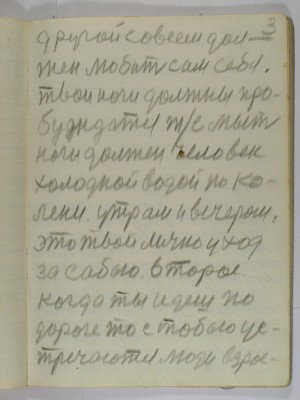 3
другой совсем дол—
жен любить сам себя.
твои ноги должны про-
бужdатся т/е мыть
ноги должен человек
холодной водой по ко-
лени. утрам и вечером,
это твой лично уход
за сабою. второе.
когда ты идеш по
дороге то с тобою ус-
тречаются люди взрос-